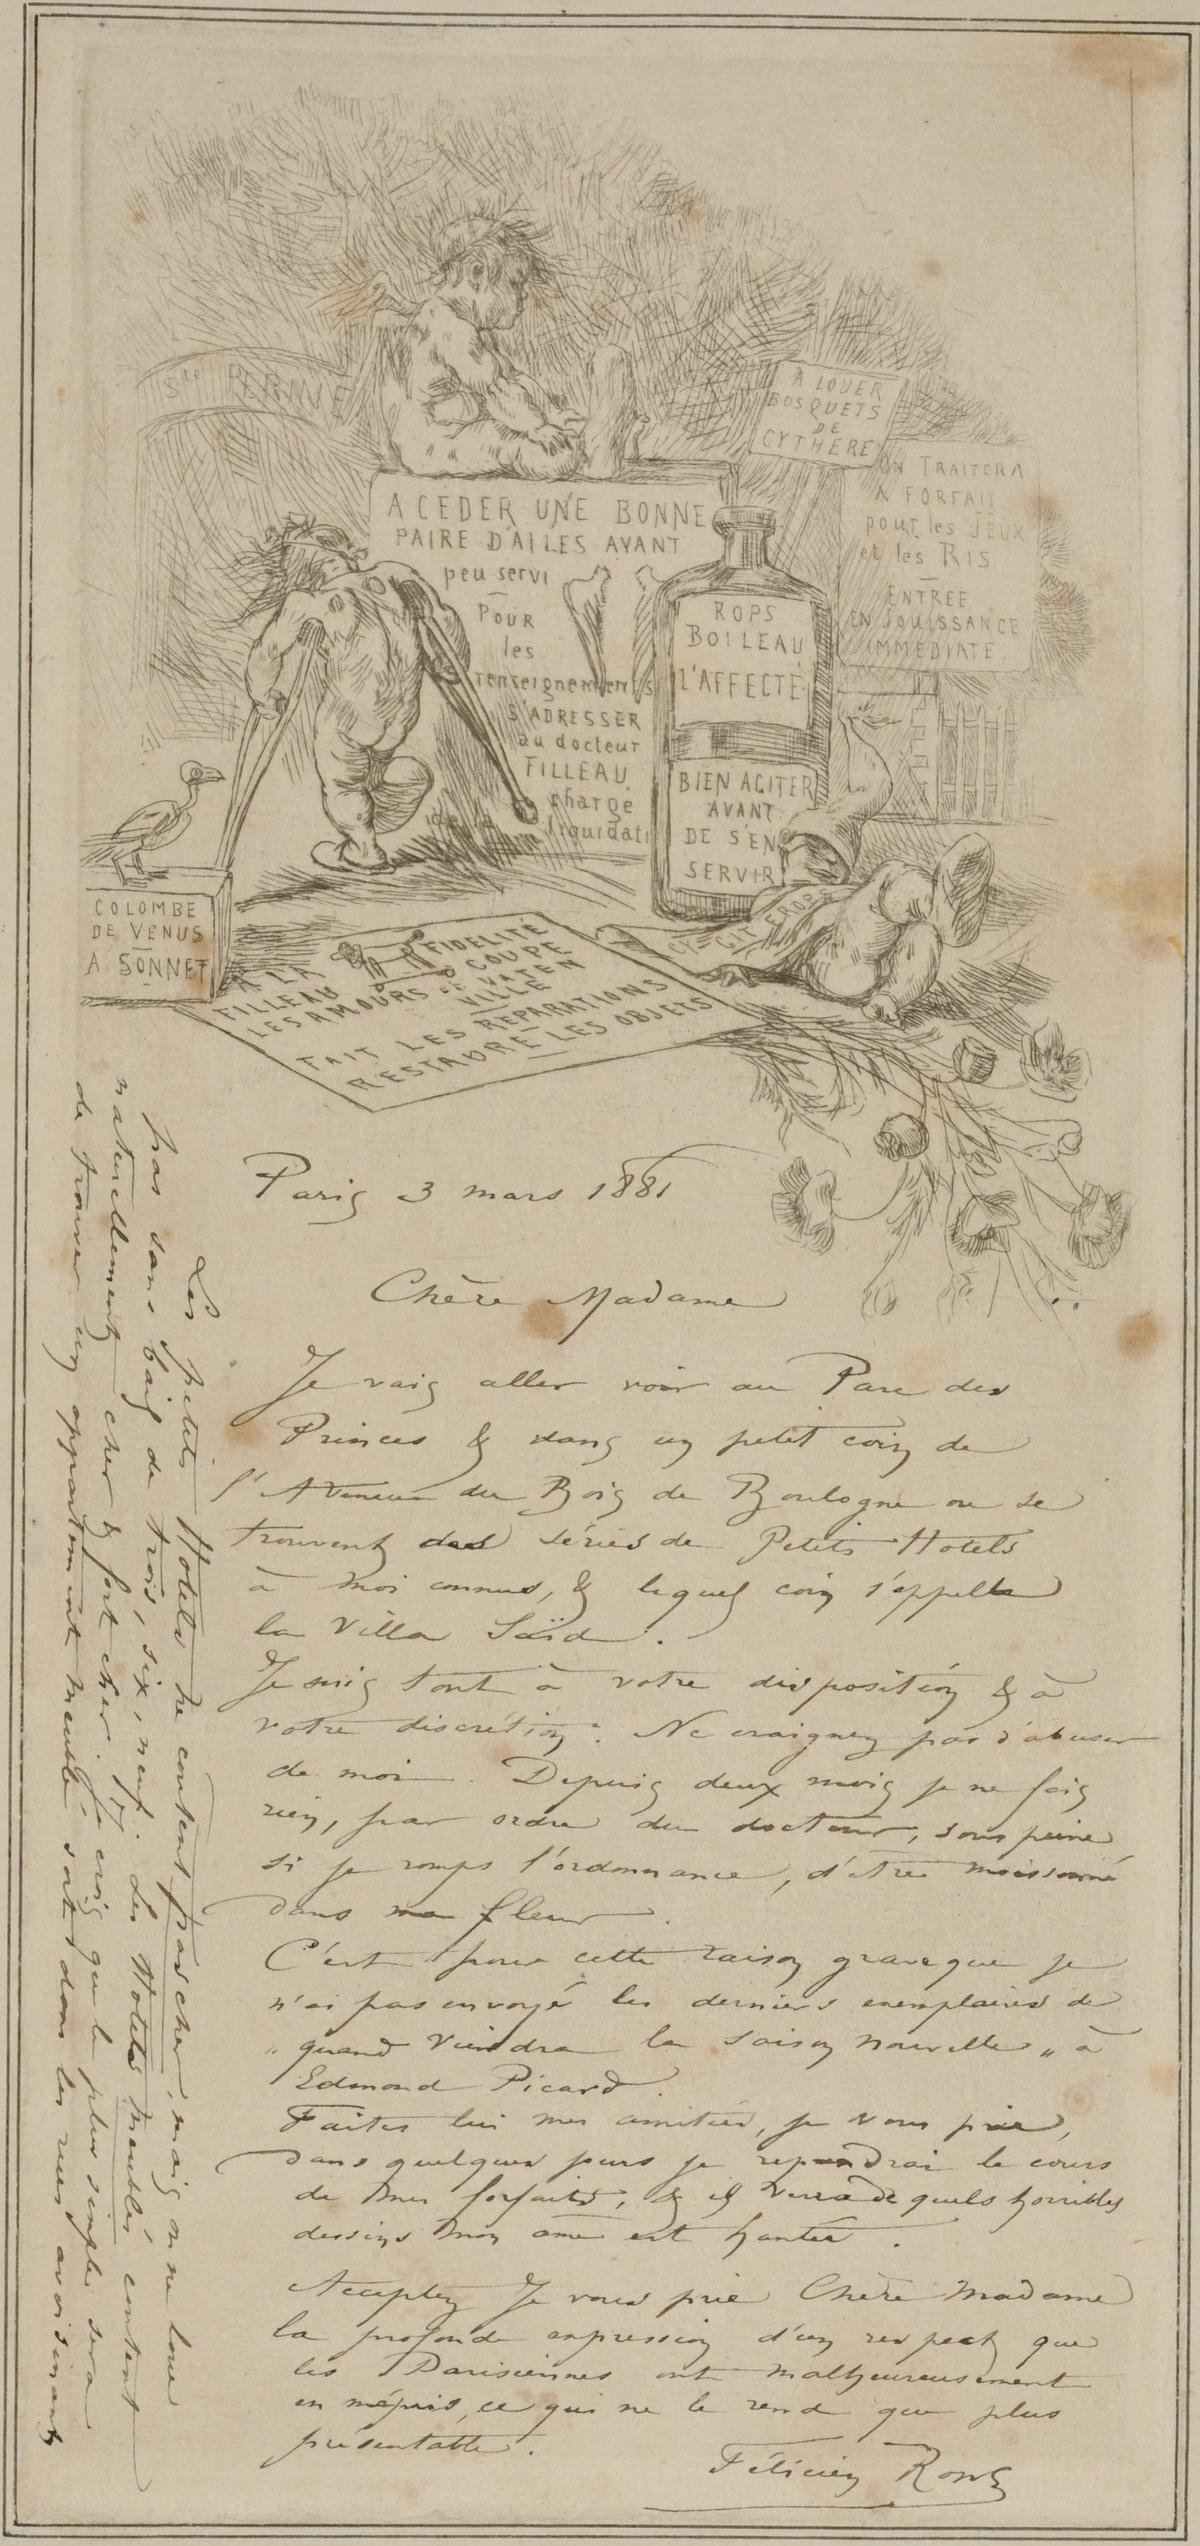 Ste PERINE
A LOUER
BOSQUETS
DE
CYTHERE
ON TRAITERA
A FORFAIT
pour les JEUX
et les RIS
ENTREE
EN JOUISSANCE
IMMEDIATE
A CEDER UNE BONNE
PAIRE D'AILES AYANT
peu servi
POUR
les
renseignements
S'ADRESSER
au docteur
FILLEAU
chargé
de la liquidati
ROPS
BOILEAU
L'AFFECTÉ
BIEN AGITER
AVANT
DE S'EN
SERVIR
COLOMBE
DE VENUS
A SONNET
CY-GIT EROPS
A LA FIDELITÉ
FILLEAU COUPE
LES AMOURS ET VA EN
VILLE
FAIT LES REPARATIONS
RESTAURE LES OBJETS
Paris 3 mars 1881
Chère Madame
Je vais aller voir au Parc des
Princes & dans un petit coin de
l'Avenue du Bois de Boulogne ou se
trouvent des séries de Petits Hotels
à moi connus, & lequel coin s'appelle
la Villa Saïd.
Je suis tout à votre disposition & à
votre discrétion : Ne craignez pas d'abuser
de moi. Depuis deux mois je ne fais
rien, par ordre du docteur, sous peine
si je romps l'ordonnance, d'être moissonné
dans ma fleur.
C'est pour cette raison grave que je
n'ai pas envoyé les derniers exemplaires de
„ quand viendra la saison nouvelle „ à
Edmond Picard.
Faites lui mes amitiés, je vous prie,
dans quelques jours je reprendrai le cours
de mes forfaits, & il verra de quels horribles
dessins mon âme est hantée.
Acceptez Je vous prie Chère Madame
la profonde expression d'un respect que
les Parisiennes ont malheureusement
en mépris, ce qui ne le rend que plus
présentable.
Félicien Rops
Les petits Hotels ne coutent pas cher, mais on ne loue
pas sans bail de trois, six, neuf. Les Hotels meublés coutent
naturellement cher & fort cher. Je crois que le plus simple sera
de trouver un appartement meublé soit dans les rues avoisinants